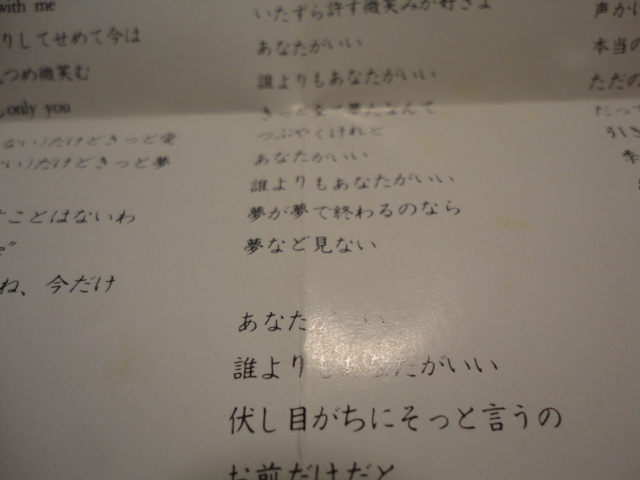 with me
りしてせめて今は
つめ微笑む
only you
ない)だけどきっと愛
い)だけどきっと夢
ことはないわ
ね、今だけ
いたずら許す微笑みが好きよ
あなたがいい
誰よりもあなたがいい
つぶやくけれど
あなたがいい
誰よりもあなたがいい
夢が夢で終わるのなら
夢など見ない
あなた
誰より なたがいい
伏し目がちにそっと言うの
お前だけだと
声か
本当の
ただの
だっ
引き